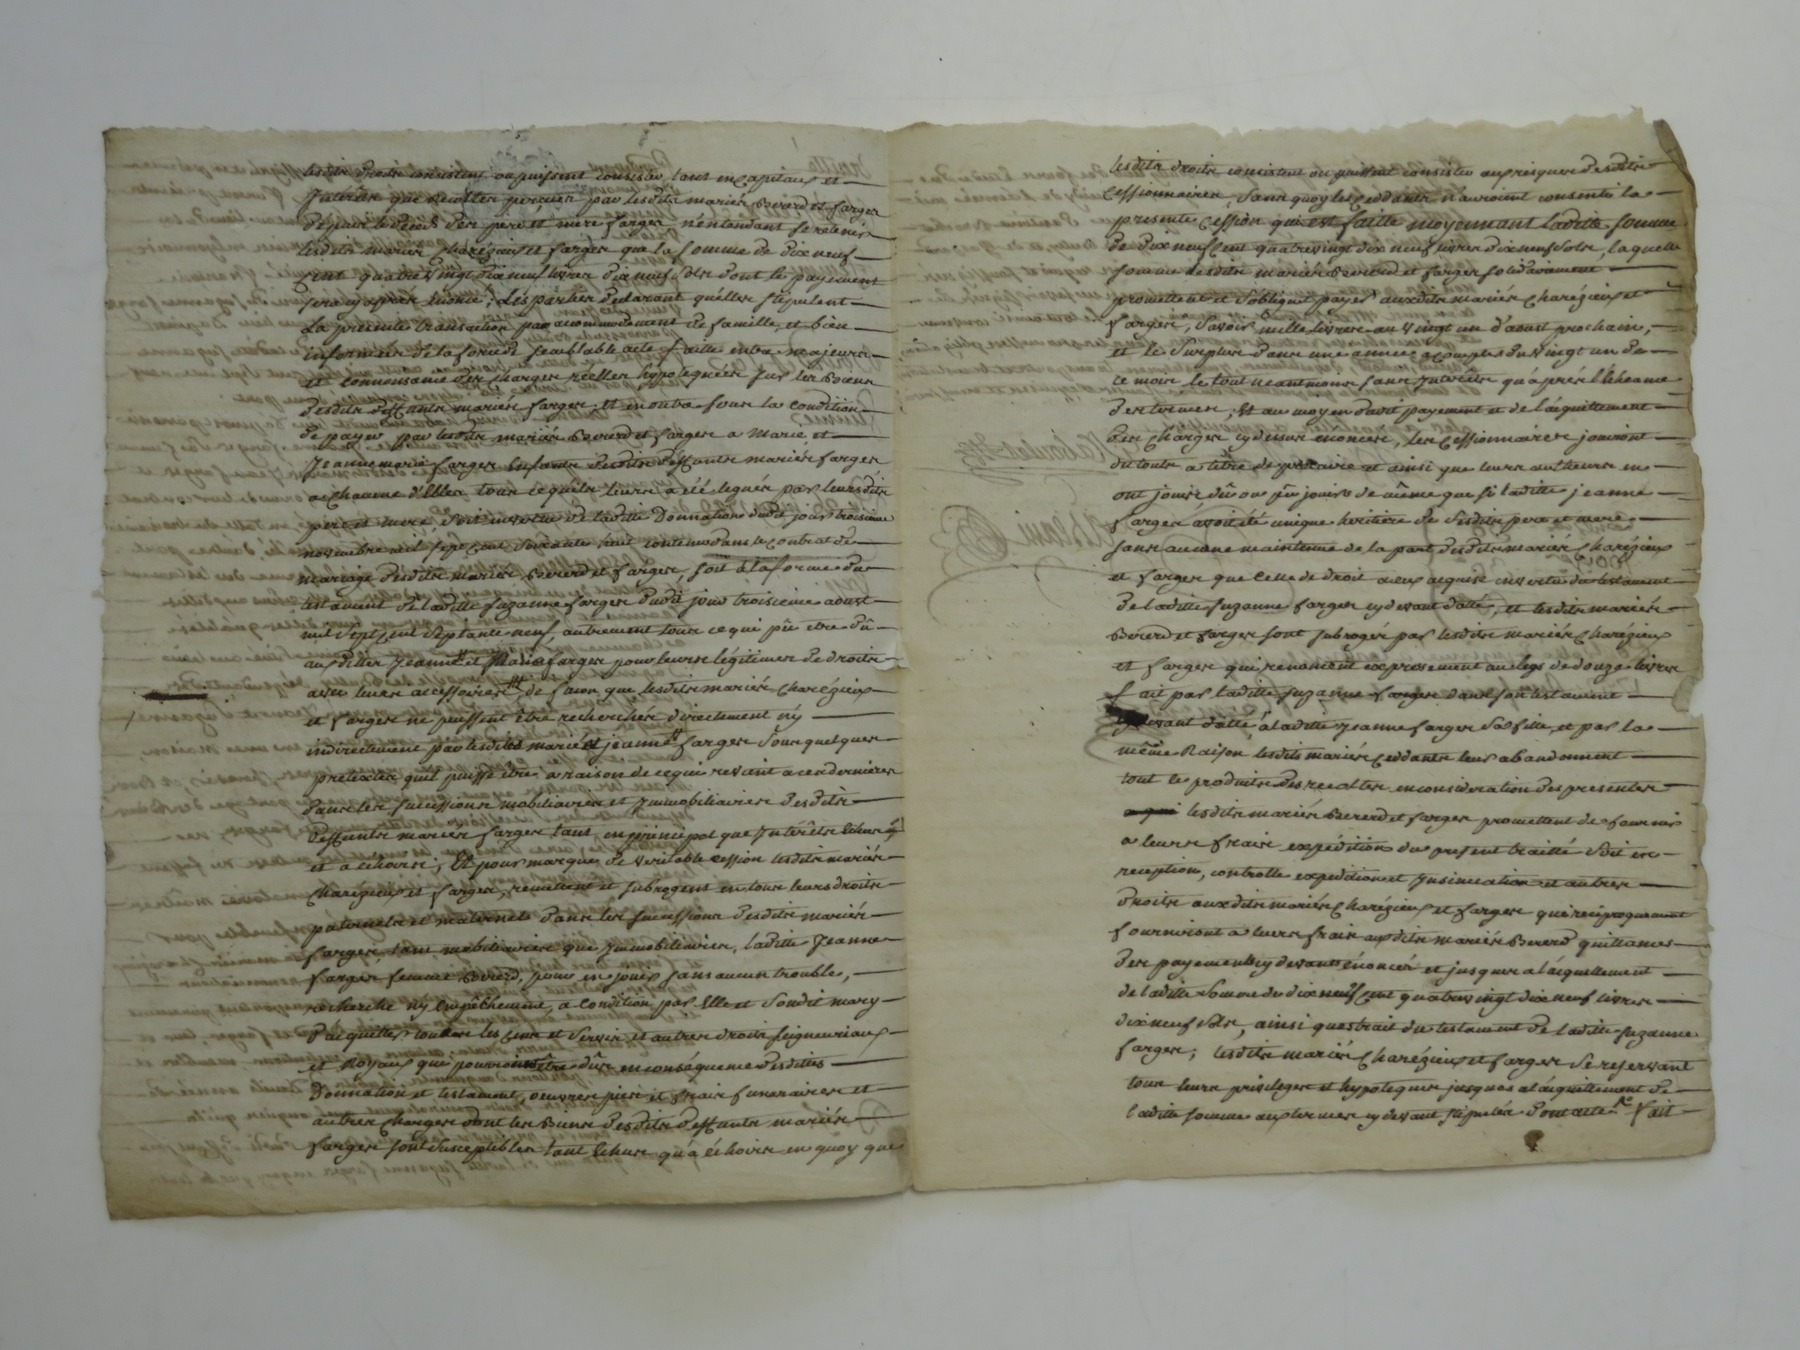 lesdits droits consistent ou puissent consister tant en capitaux et
Interêts que recoltes perçues par lesdits mariés Bererd et farges
depuis le deces des pere et mere farges n'entendant se retenir
lesdits mariés Charézieux et farges que la somme de dix neuf
cent quatre vingt dix neuf livres dix neuf sols dont le payement
sera cy après énoncé; Les parties declarant quelles stipulent
La presente transaction par accommodement de famille, et bien
informées de la force de semblable acte faitte entre majeurs
et connoissance des charges réelles hypotequées sur les Biens
desdits deffunts mariés farges, Et en outre sous la condition
de payer par lesdits mariés Bererd et farges a Marie, et
Jeanne marie farges Enfants desdits deffunts mariés farges
a chacune d'Elles tout ce qu'ils leurs a été legués par leursdits
pere et mere soit en vertu de laditte Donnation dudit jour troisieme
novembre mil sept cent soixante huit contenu dans le contrat de
mariage desdits mariés Bererd et farges, soit à la forme du
testament de laditte Suzanne farges dudit jour troisieme aoust
mil sept cent septante neuf, autrement tout ce qui peu etre dû
aux dittes Jeanne et Marie farges pour leurs légitimes de droits
avec leurs accessoires, de facon que lesdits mariés Charézieux
et farges ne puissent être recherchés directement ny
indirectement par lesdites marie et jeanne farges sous quelques
pretextes qu'il puisse être, a raison de ce qui revient a ces dernieres
dans les successions mobiliaires et Jmmobiliaires desdits
deffunts mariés farges tant en principal que Intérêts Echus
et a echoirs; Et pour marque de veritable cession lesdits mariés
Charézieux et farges, remettent et subrogent en tous leurs droits
paternels et maternels dans les successions desdits mariés
farges tant mobiliaires que Jmmobiliaires, laditte Jeanne
farges femme Bererd, pour en jouir sans aucun trouble,
recherche ny empêchement, a condition par Elle et sondit mary
d'acquitter touttes les cens et Servis et autres droits seigneuriaux
et Royaux que pourroient être dûs en conséquence desdites
Donnation et testament, oeuvres pies et frais funeraires et
autres charges dont les Biens desdits deffunts mariés
farges sont susceptibles tant Echus qu'à échoirs en quoy que
lesdits droits consistent ou puissent consister au risques desdits
Cessionnaires, sans quoy les ceddants n'auroient consenti la
presente Cession qui est faitte moyennant laditte somme
de dix neuf cent quatre vingt dix neuf livres dix neuf sols, laquelle
somme lesdits mariés Bererd et farges solidairement
promettent et s'obligent payer auxdits mariés Charézieux et
farges, savoir mille livres au vingt un d'aoust prochain,
et le Surplus dans une année a compter du vingt un du
ce mois le tout neantmoins sans Interêts qu'après l'Echeance
des termes; Et au moyen dudit payement et de l'acquittement
des charges cy dessus enoncées, les Cessionnaires jouiront
du toute a titre de precaire et ainsi que leurs autheurs en
ont jouir dû ou peu jouir de même que si laditte jeanne
farges avoit été unique heritiere de sesdits pere et mere
sans aucune maintenue de la part desdits mariés Charézieux
et farges que celle de droit a eux acquise en vertu du testament
de laditte Suzanne farges cy devant datté, et lesdits mariés
Bererd et farges sont subrogés par lesdits mariés Charézieux
et farges qui renoncent expressement au legs de douze livres
fait par laditte Suzanne farges dans son testament
cy devant datté, à laditte Jeanne farges sa fille, et par la
même Raison lesdits mariés ceddants leur abandonnent
tout le produits des recoltes en consideration des presentes
lesdits mariés Bererd et farges promettent de fournir
a leurs frais expédition du present traitté soit en
reception, controlle expedition et Jnsinuation et autres
droits auxdits mariés Charézieux et farges qui reciproquement
fourniront a leurs frais auxdits mariés Bererd quittances
des payements cy devants énoncés et jusques a l'acquittement
de laditte somme de dix neuf cent quatre vingt dix neuf livres
dix neuf sols, ainsi qu'extrait du testament de laditte Suzanne
farges; lesdits mariés Charézieux et farges se reservant
tous leurs privileges et hypoteques jusques a l'acquittement de
laditte somme aux termes cy devant stipulés dont acte fait